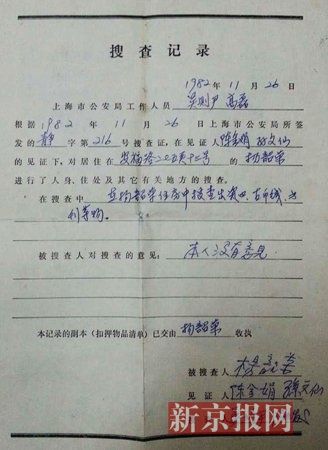 搜查记录
1982年11月26日
上海市公安局工作人员 吴则尹 高磊
根据1982年11月26日上海市公安局所签
发的静字第216号搜查证，在见证人陈金娟 孙文仙
的见证下，对居住在安福路 的杨韶荣
进行了人身、住处及其它有关地方的搜查。
在搜查中 在杨韶荣住房中搜查出 古币
等物。
被搜查人对搜查的意见：本人没有意见
本记录的副本（扣押物品清单）已交由 杨韶荣 收执
被搜查人 杨韶荣
见证人 陈金娟 孙文仙
新京报网